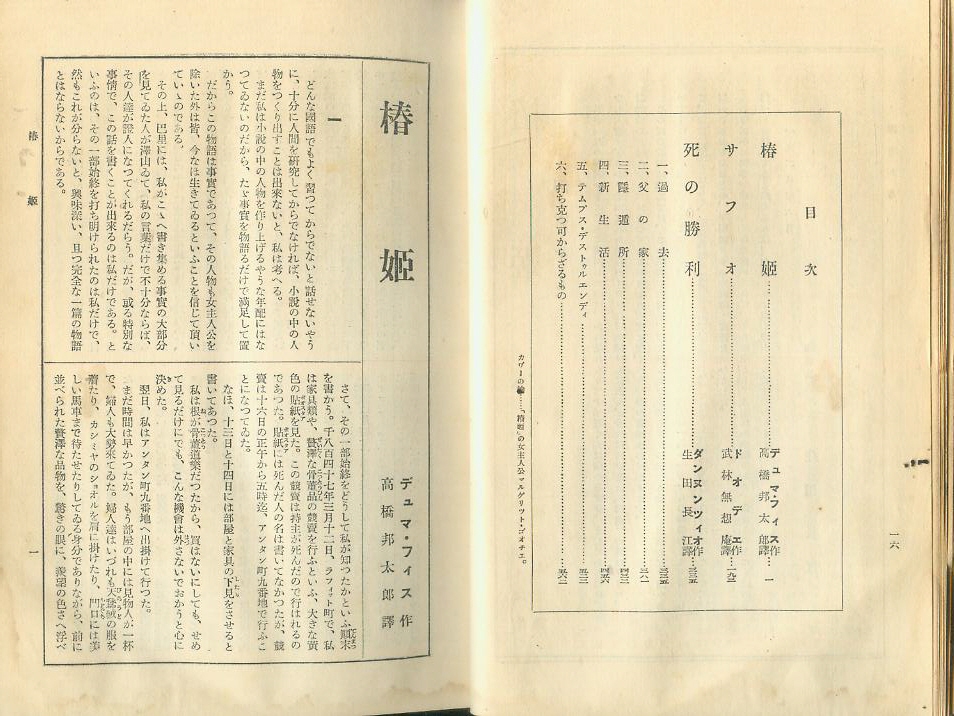 目次
椿姫……デュマ・フィス作 高橋邦太郎譯…一
サフオ……ドオデエ作 武林無想庵譯…一九一
死の勝利……ダンヌンツィオ作 生田長江譯…三三五
一、過去……三三五
二、父の家……三八一
三、隱遁所……四三三
四、新生活……四五六
五、テムプス・デストゥルエンディ
六、打ち克つ可からざるもの……五六二
カヴーの繪……「椿姫」の女主人公マルグリット・ゴオチエ。
一六
椿姫
デュマ・フィス作
高橋邦太郎譯
一
どんな國語でもよく習つてからでないと話せないやう
に、十分に人間を研究してからでなければ、小説の中の人
物をつくり出すことは出來ないと、私は考へる。
まだ私は小説の中の人物を作り上げるやうな年配にはな
つてゐないのだから、たゞ事實を物語るだけで滿足して置
かう。
だからこの物語は事實であつて、その人物も女主人公を
除いた外は皆、今なほ生きてゐるといふことを信じて頂い
てい丶のである。
その上、巴里には、私がこ丶へ書き集める事實の大部分
を見てゐた人が澤山ゐて、私の言葉だけで不十分ならば、
その人達が證人になつてくれるだらう。だが、或る特別な
事情で、この話を書くことが出來るのは私だけである。と
いふのは、その一部始終を打ち明けられたのは私だけで、
然もこれが分らないと、興味深い、且つ完全な一篇の物語
とはならないからである。
さて、その一部始終をどうして私が知つたかといふ顚末
を書かう。千八百四十七年三月十二日、ラフィット町で、私
は家具類や、贅澤な骨董品の競賣を行ふといふ、大きな黄
色の貼紙を見た。この競賣は持主が死んだので行はれるの
であつた。貼紙には死んだ人の名は書いてなかつたが、競
賣は十六日の正午から五時迄、アンタン町九番地で行ふこ
とになつてゐた。
なほ、十三日と十四日には部屋と家具の下見をさせると
書いてあつた。
私は根が骨董道樂だつたから、買はないにしても、せめ
て見るだけにでも、こんな機會は外さないでおかうと心に
決めた。
翌日、私はアンタン町九番地へ出掛けて行つた。
まだ時間は早かつたが、もう部屋の中には見物人が一杯
で、婦人も大勢來てゐた。婦人達はいづれも天鵞絨の服を
着たり、カシミヤのショオルを肩に掛けたり、門口には美
しい馬車まで待たせたりしてゐる身分でありながら、前に
並べられた贅澤な品物を、驚きの眼に、羨望の色さへ浮べ
椿姫
一